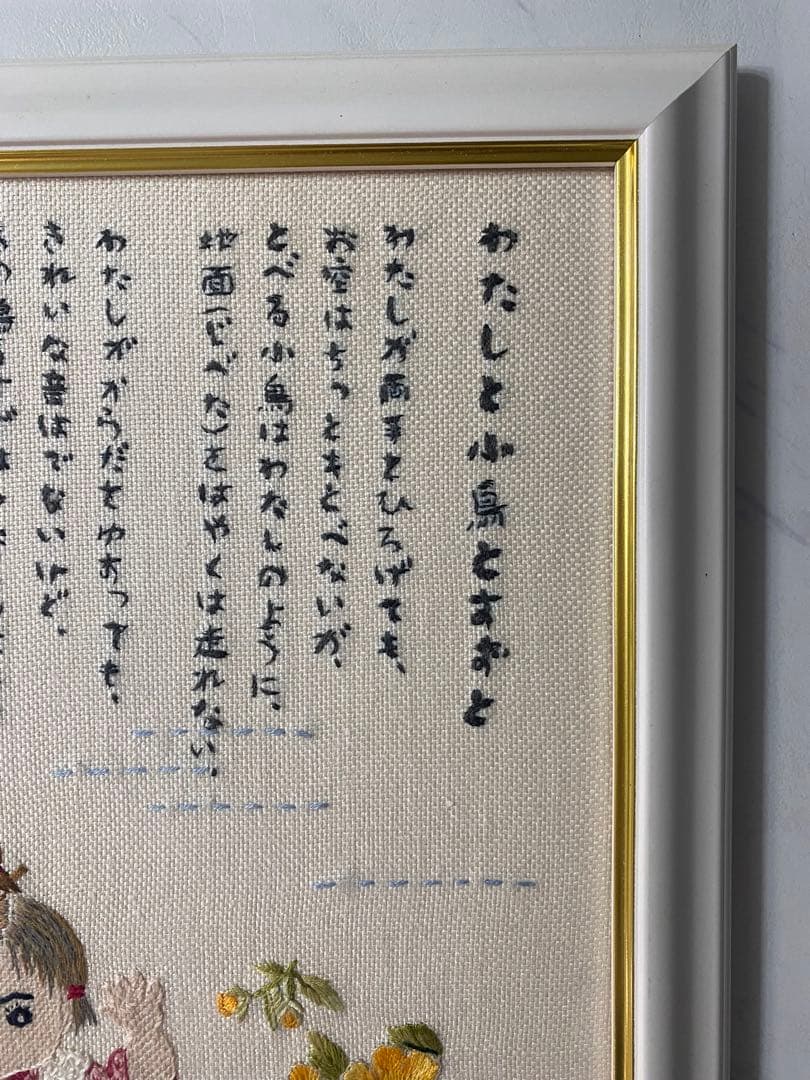 わたしと小鳥とすずと
わたしが両手をひろげても、
お空はちっともとべないが、
とべる小鳥はわたしのように、
地面(じべた)をはやくは走れない。
わたしがからだをゆすっても、
きれいな音はでないけど、